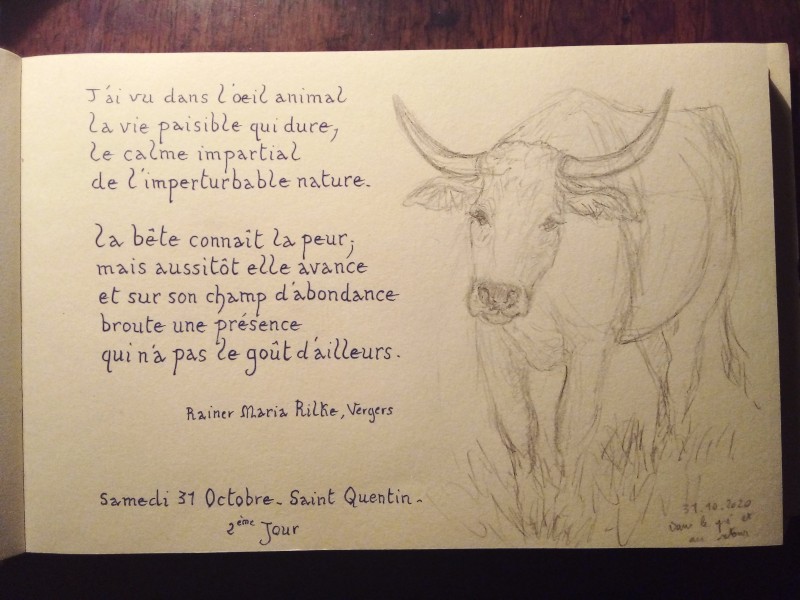 J'ai vu dans l'oeil animal
la vie paisible qui dure,
le calme impartial
de l'imperturbable nature.
la bête connaît la peur;
mais aussitôt elle avance
et sur son champ d'abondance
broute une présence
qui n'a pas le goût d'ailleurs.
Rainer Maria Rilke, Vergers
Samedi 31 Octobre - Saint Quentin -
2ème Jour
31.10.2020